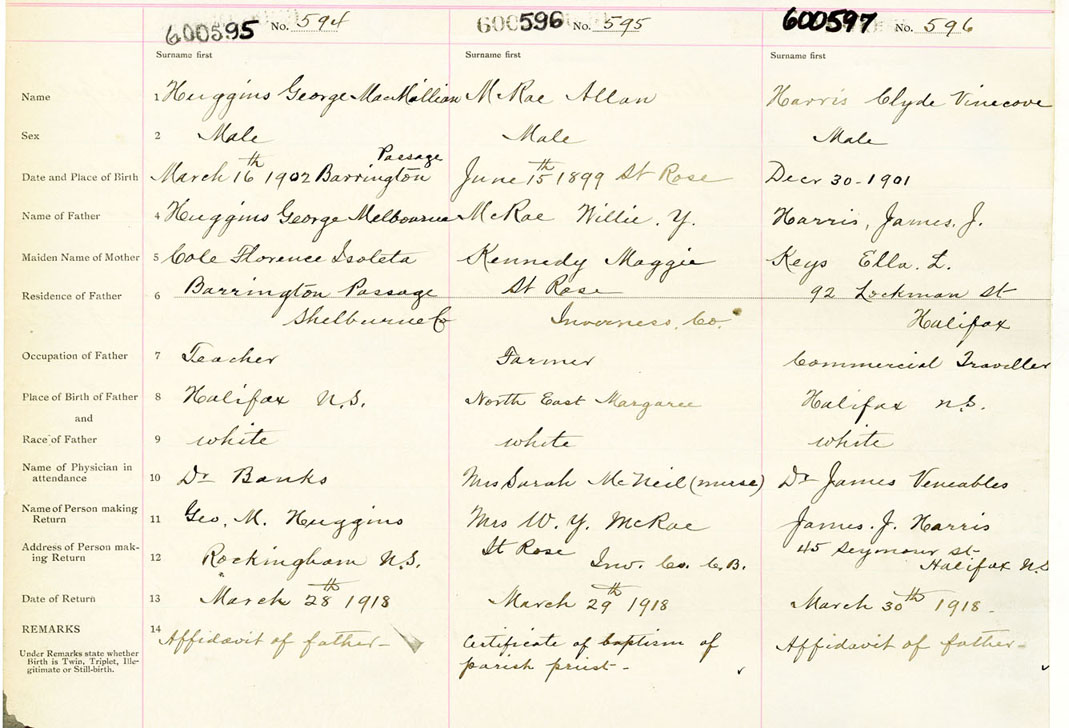 600595 No. 594 600596 No. 595 600597 No. 596
Surname first Surname first Surname first
Name 1 Huggins George MacMillian McRae Allan Harris Clyde Vinecove
Sex 2 Male Male Male
Passage
Date and Place of Birth 3 March 16th 1902 Barrington June 15th 1899 St Rose Decr 30-1901
Name of Father 4 Huggins George Melbourne McRae Willie. Y. Harris, James. J.
Maiden Name of Mother 5 Cole Florence Isoleta Kennedy Maggie Keys Ella. L.
Residence of Father 6 Barrington Passage St Rose 92 Lockman St
Shelburne Co Inverness. Co. Halifax
Occupation of Father 7 Teacher Farmer Commercial Traveller
Place of Birth of Father 8 Halifax N.S. North East Margaree Halifax N.S.
and
Race of Father 9 white white white
Name of Physician in
attendance 10 Dr Banks Mrs Sarah McNeil (nurse) Dr James Veneables
Name of Person making
Return 11 Geo. M. Huggins Mrs W. Y. McRae James. J. Harris
Address of Person mak-
ing Return 12 Rockingham N.S. St Rose 45 Seymour St-
Inv. Co. C.B. Halifax N.S
Date of Return 13 March 28th 1918 March 29th 1918 March 30th 1918.
REMARKS 14 Affidavit of father- Certificate of baptism of Affidavit of father-
parish priest-
Under Remarks state whether
Birth is Twin, Triplet, Ille-
gitimate or Still-birth.